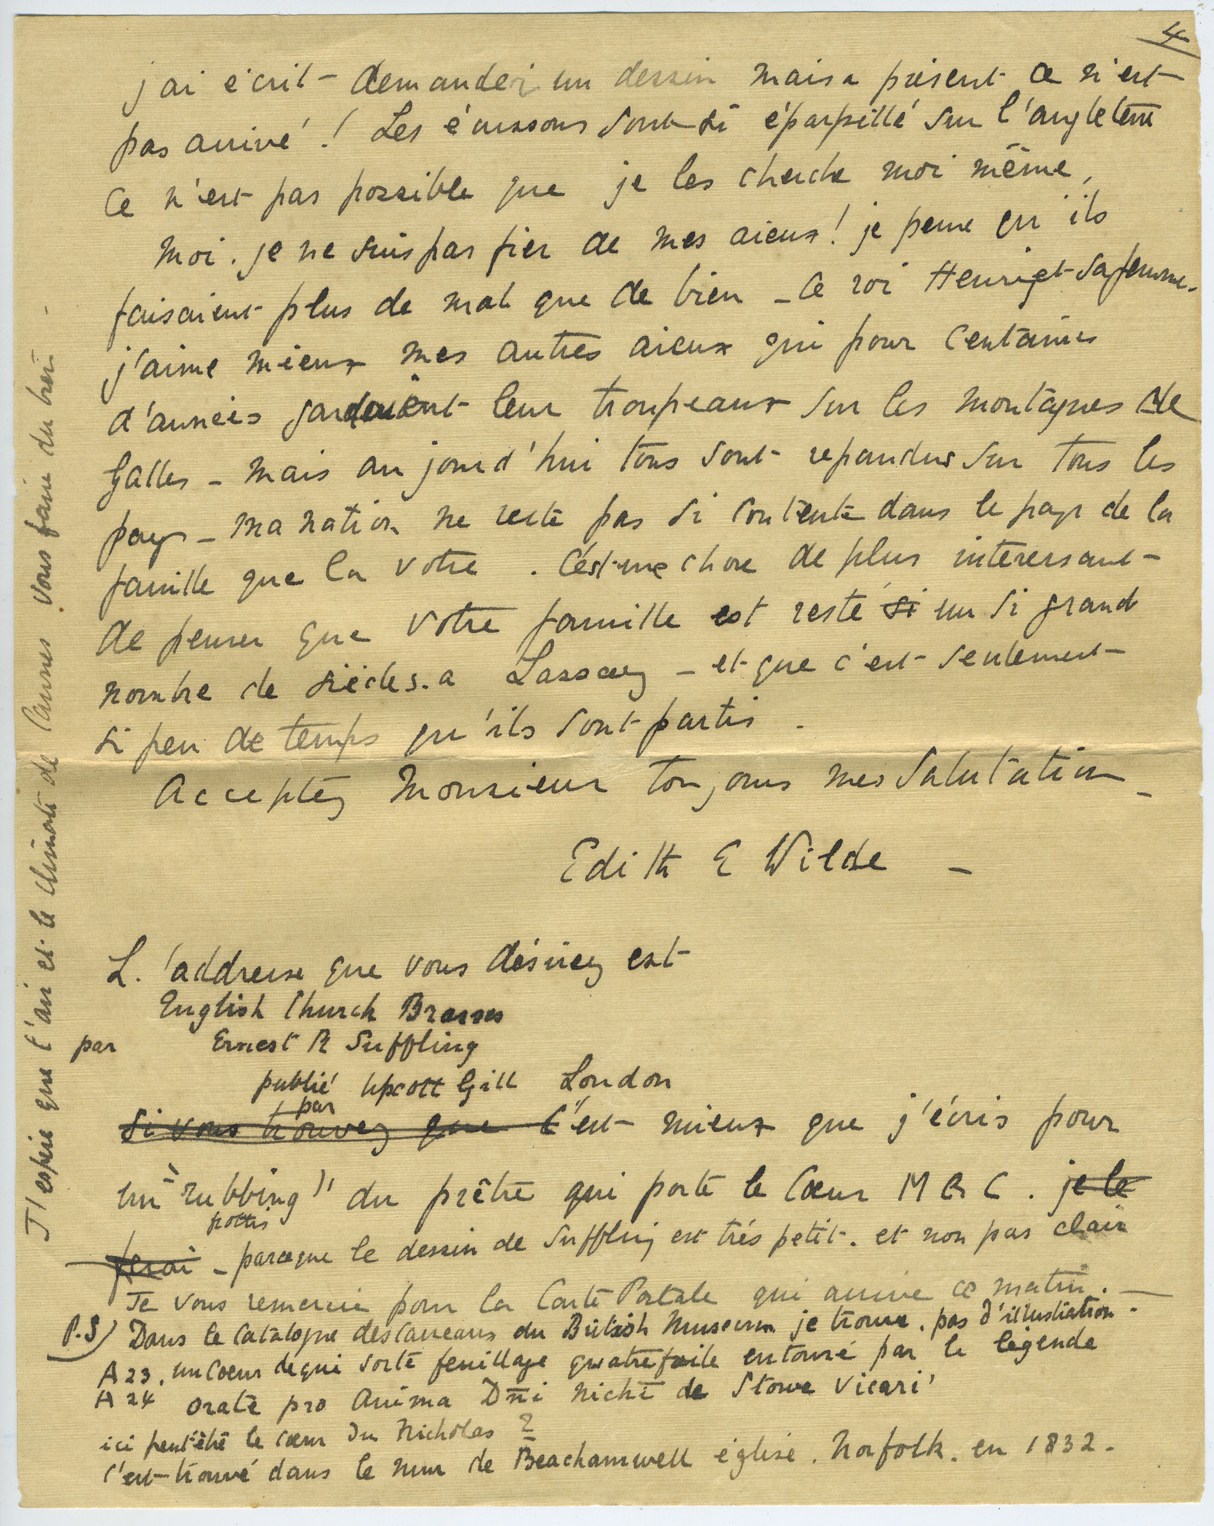 4
j'ai écrit demander un dessin mais a présent ce n'est
pas arrivé ! Les écussons sont si éparpillé sur l'angleterre
Ce n'est pas possible que je les cherche moi même,
Moi. je ne suis pas fier de mes aieux ! je pense qu'ils
faisaient plus de mal que de bien _ Ce roi Henri et sa femme.
j'aime mieux mes autres aieux qui pour centaines
d'années gardaient leur troupeaux sur les montagnes de
Galles _ Mais aujourd'hui tous sont repandus sur tous les
pays _ ma nation ne reste pas si contente dans le pays de la
famille que la votre . C'est une chose de plus interessant
de penser que votre famille est resté si un si grand
nombre de siècles. a Lassay _ et que c'est seulement
si peu de temps qu'ils sont partis .
Acceptez Monsieur toujours mes Salutation _
Edith E Wilde _
L'addresse que vous désirez est
English Church Brasses
par Ernest R Suffling
publié par Upcott Gill London
Si vous trouvez que C'est mieux que j'écris pour
un "rubbing" du prêtre qui porte le Cœur M B C . je le
frottis
ferai _ parceque le dessin de Suffling est trés petit. et non pas clair
Je vous remercie pour la Carte Postale qui arrive ce matin. _
P.S) Dans le Catalogue des Carreaux du British Museum je trouve. pas d'illustration -
A 23. un Coeur de qui sorte feuillage quatrefoile entouré par le légende
A 24 orate pro anima Dñi Nichī de Stowe Vicari'
ici peut être le cœur du Nicholas ?
C'est trouvé dans le mur de Beachamwell église. Norfolk. en 1832 -
J'espère que l'air et le climat de Cannes vous faire du bien -